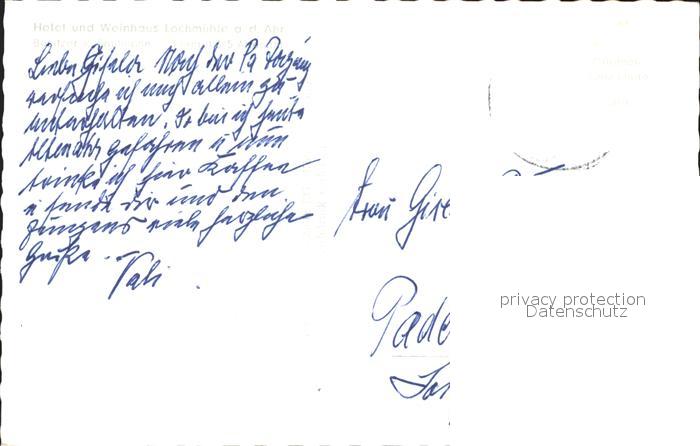 Hotel und Weinhaus Lochmühle a. d. Ahr
Liebe Gisela! Nach der
versuche ich mich allein zu
unterhalten. So bin ich heute
Altenahr gefahren u nun
trinke ich hier Kaffee
u sende dir und den
Jungens viele herzliche
Grüße.
Frau Gise
Pade
privacy protection
Datenschutz